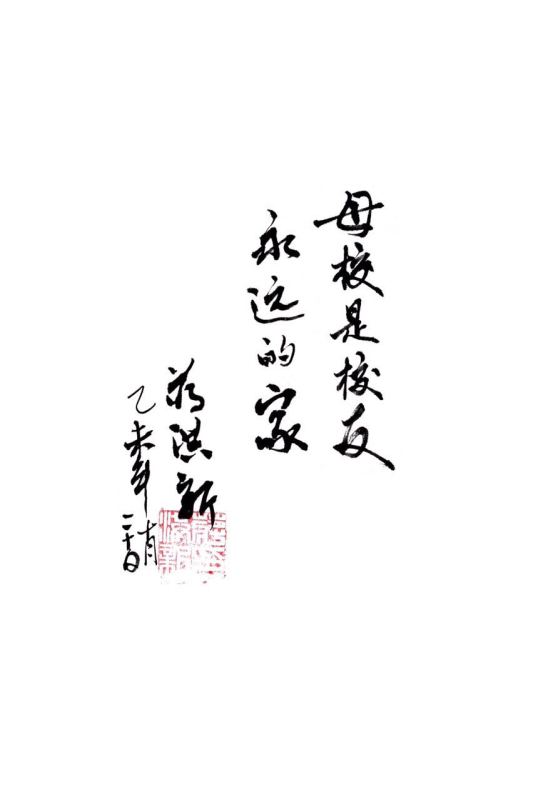 母校是校友
永远的家
蒋洪新
乙未年
十月
二十日